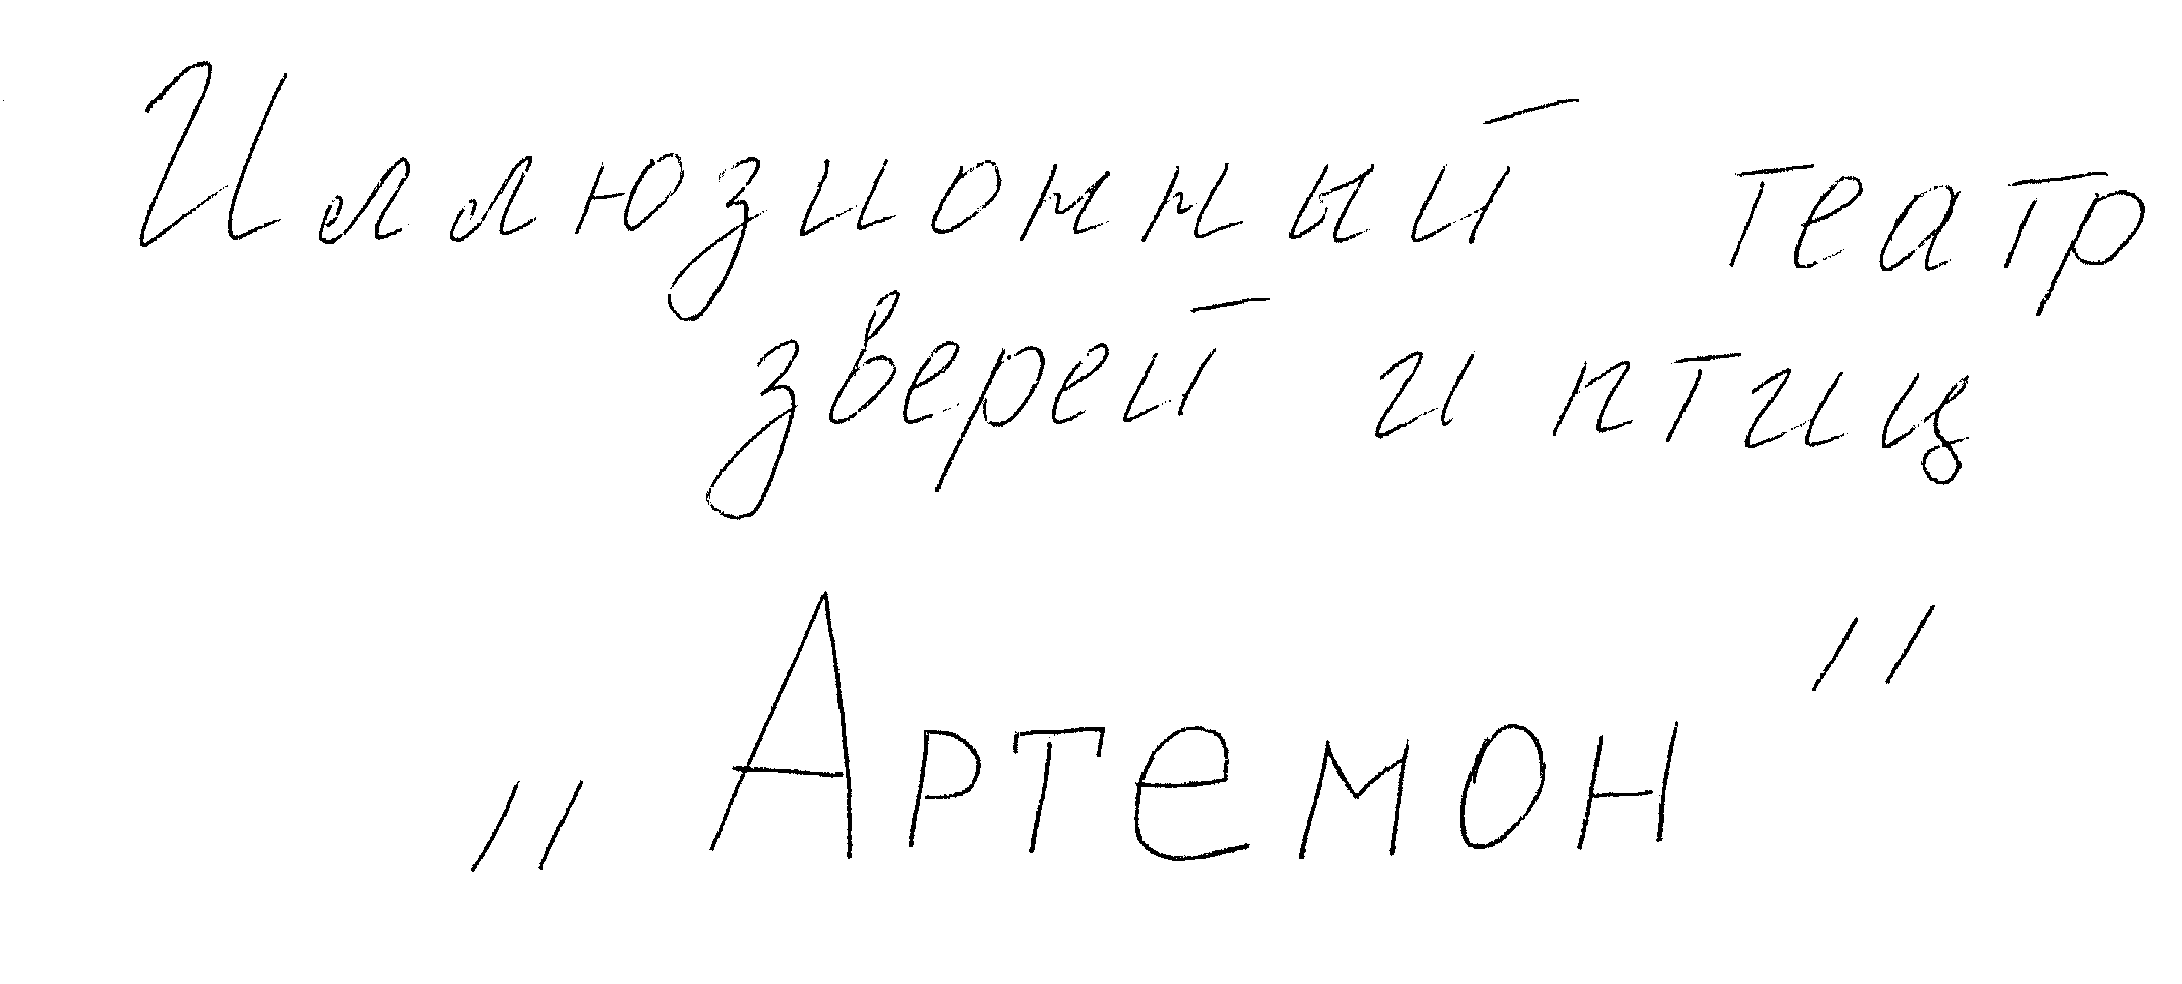 Иллюзионный театр
зверей и птиц
„Артемон"